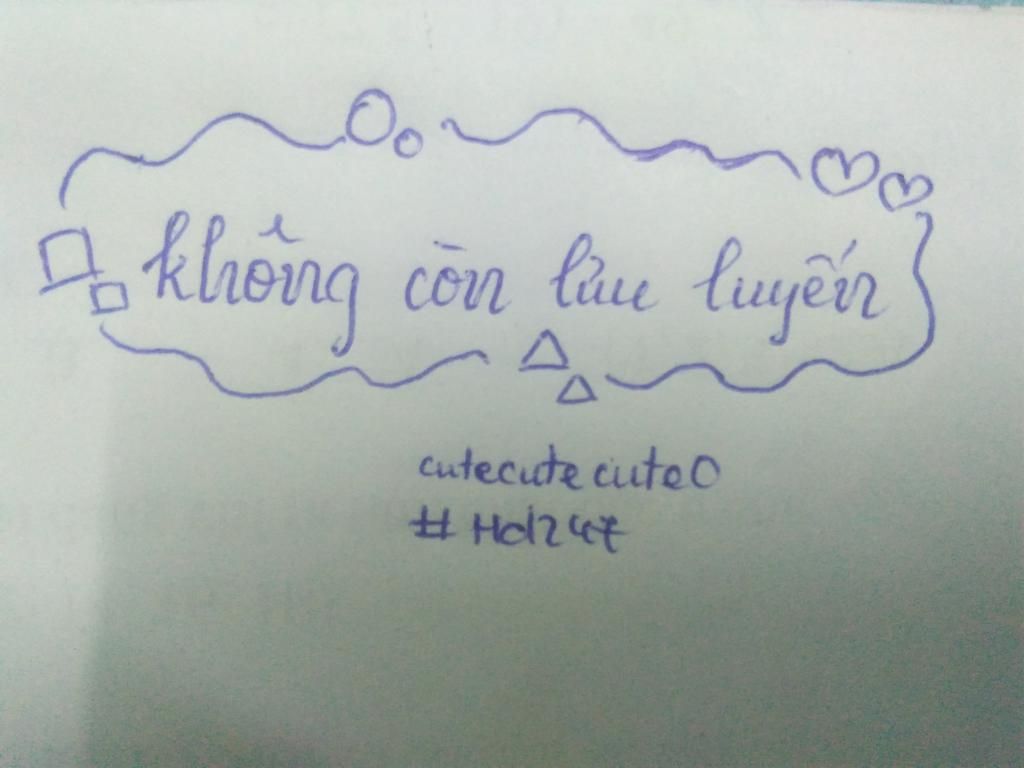 không còn lưu luyến
cutecutecute0
#Hd247